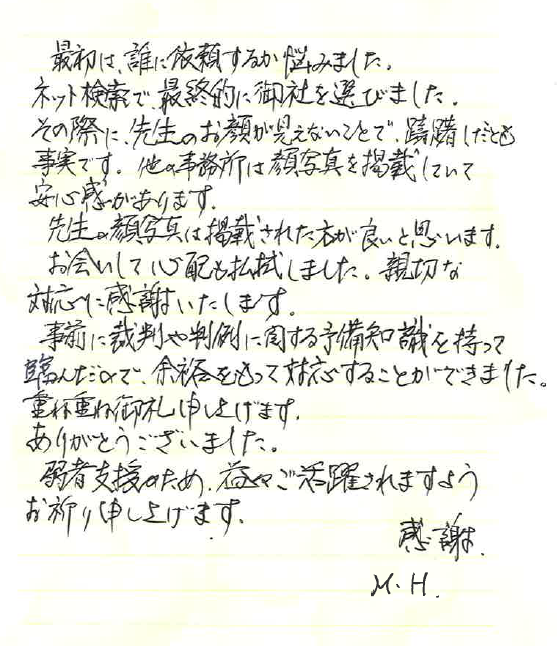 最初は、誰に依頼するか悩みました。
ネット検索で、最終的に御社を選びました。
その際に、先生のお顔が見えないことで、躊躇したことも
事実です。他の事務所は顔写真を掲載していて
安心感があります。
先生の顔写真は掲載された方が良いと思います。
お会いして心配も払拭しました。親切な
対応に感謝いたします。
事前に裁判や判例に関する予備知識を持って
臨んだので、余裕をもって対応することができました。
重ね重ね御礼申し上げます。
ありがとうございました。
弱者支援のため、益々ご活躍されますよう
お祈り申し上げます。
感謝。
M.H.